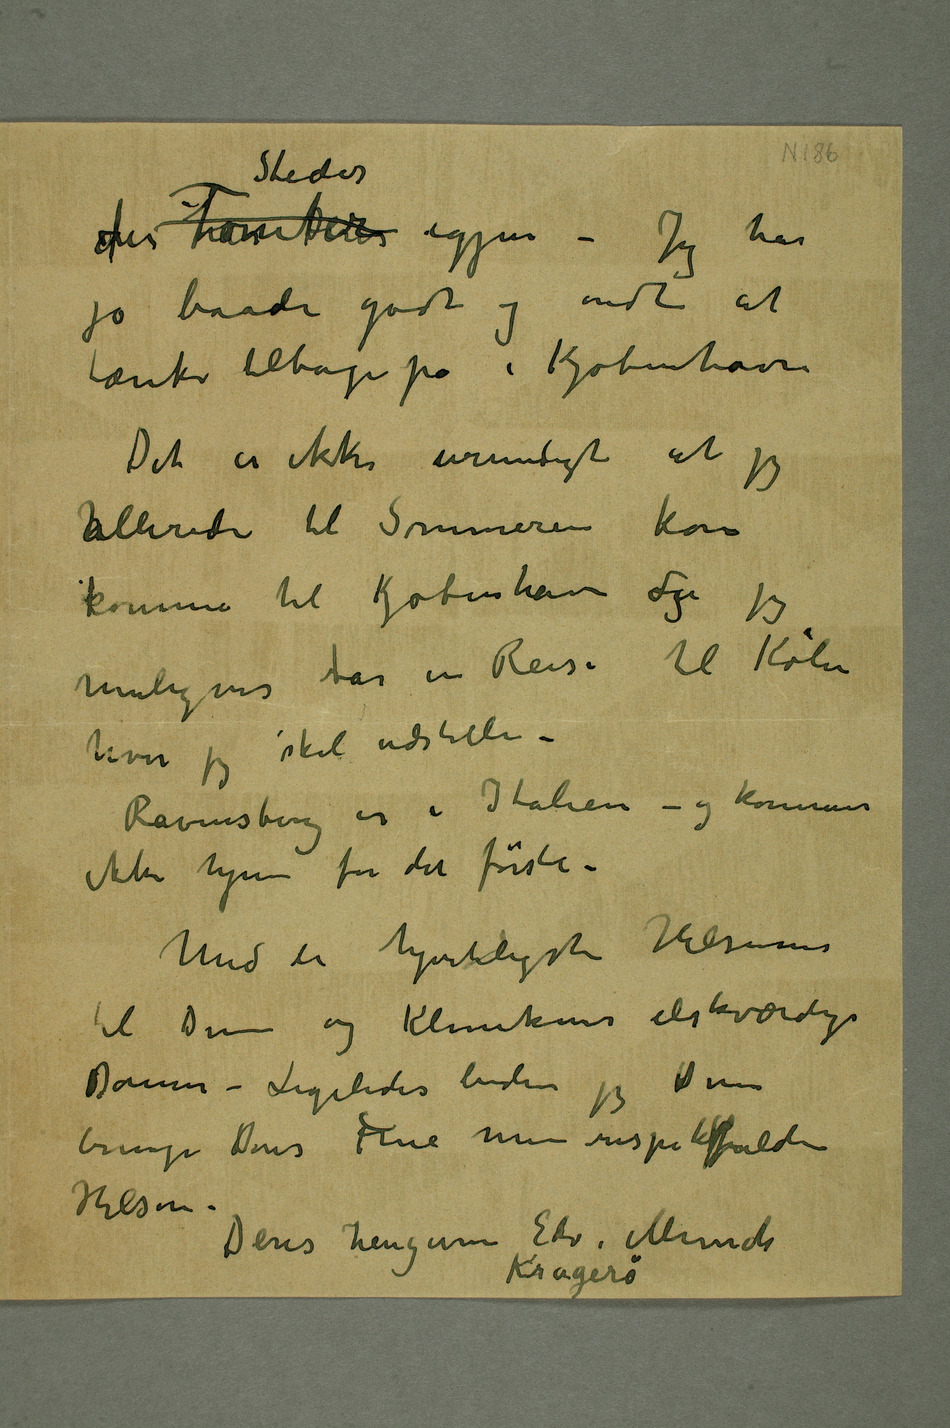 N 186
Steder
des igjen – Jeg har
jo baade godt og ondt at
tænke tilbage på i Kjøbenhavn
Det er ikke umuligt at jeg
allerede til Sommeren kan
komme til Kjøbenhavn da jeg
muligens tar en Reise til Köln
hvor jeg skal udstille –
Ravensberg er i Italien – og kommer
ikke hjem for det förste –
Med de hjerteligste Hilsener
til Dem og Klinikens elskværdige
Damer – Ligeledes beder jeg Dem
bringe Deres Frue min respektfulde
Hilsen.
Deres hengivne Edv. Munch
Kragerö